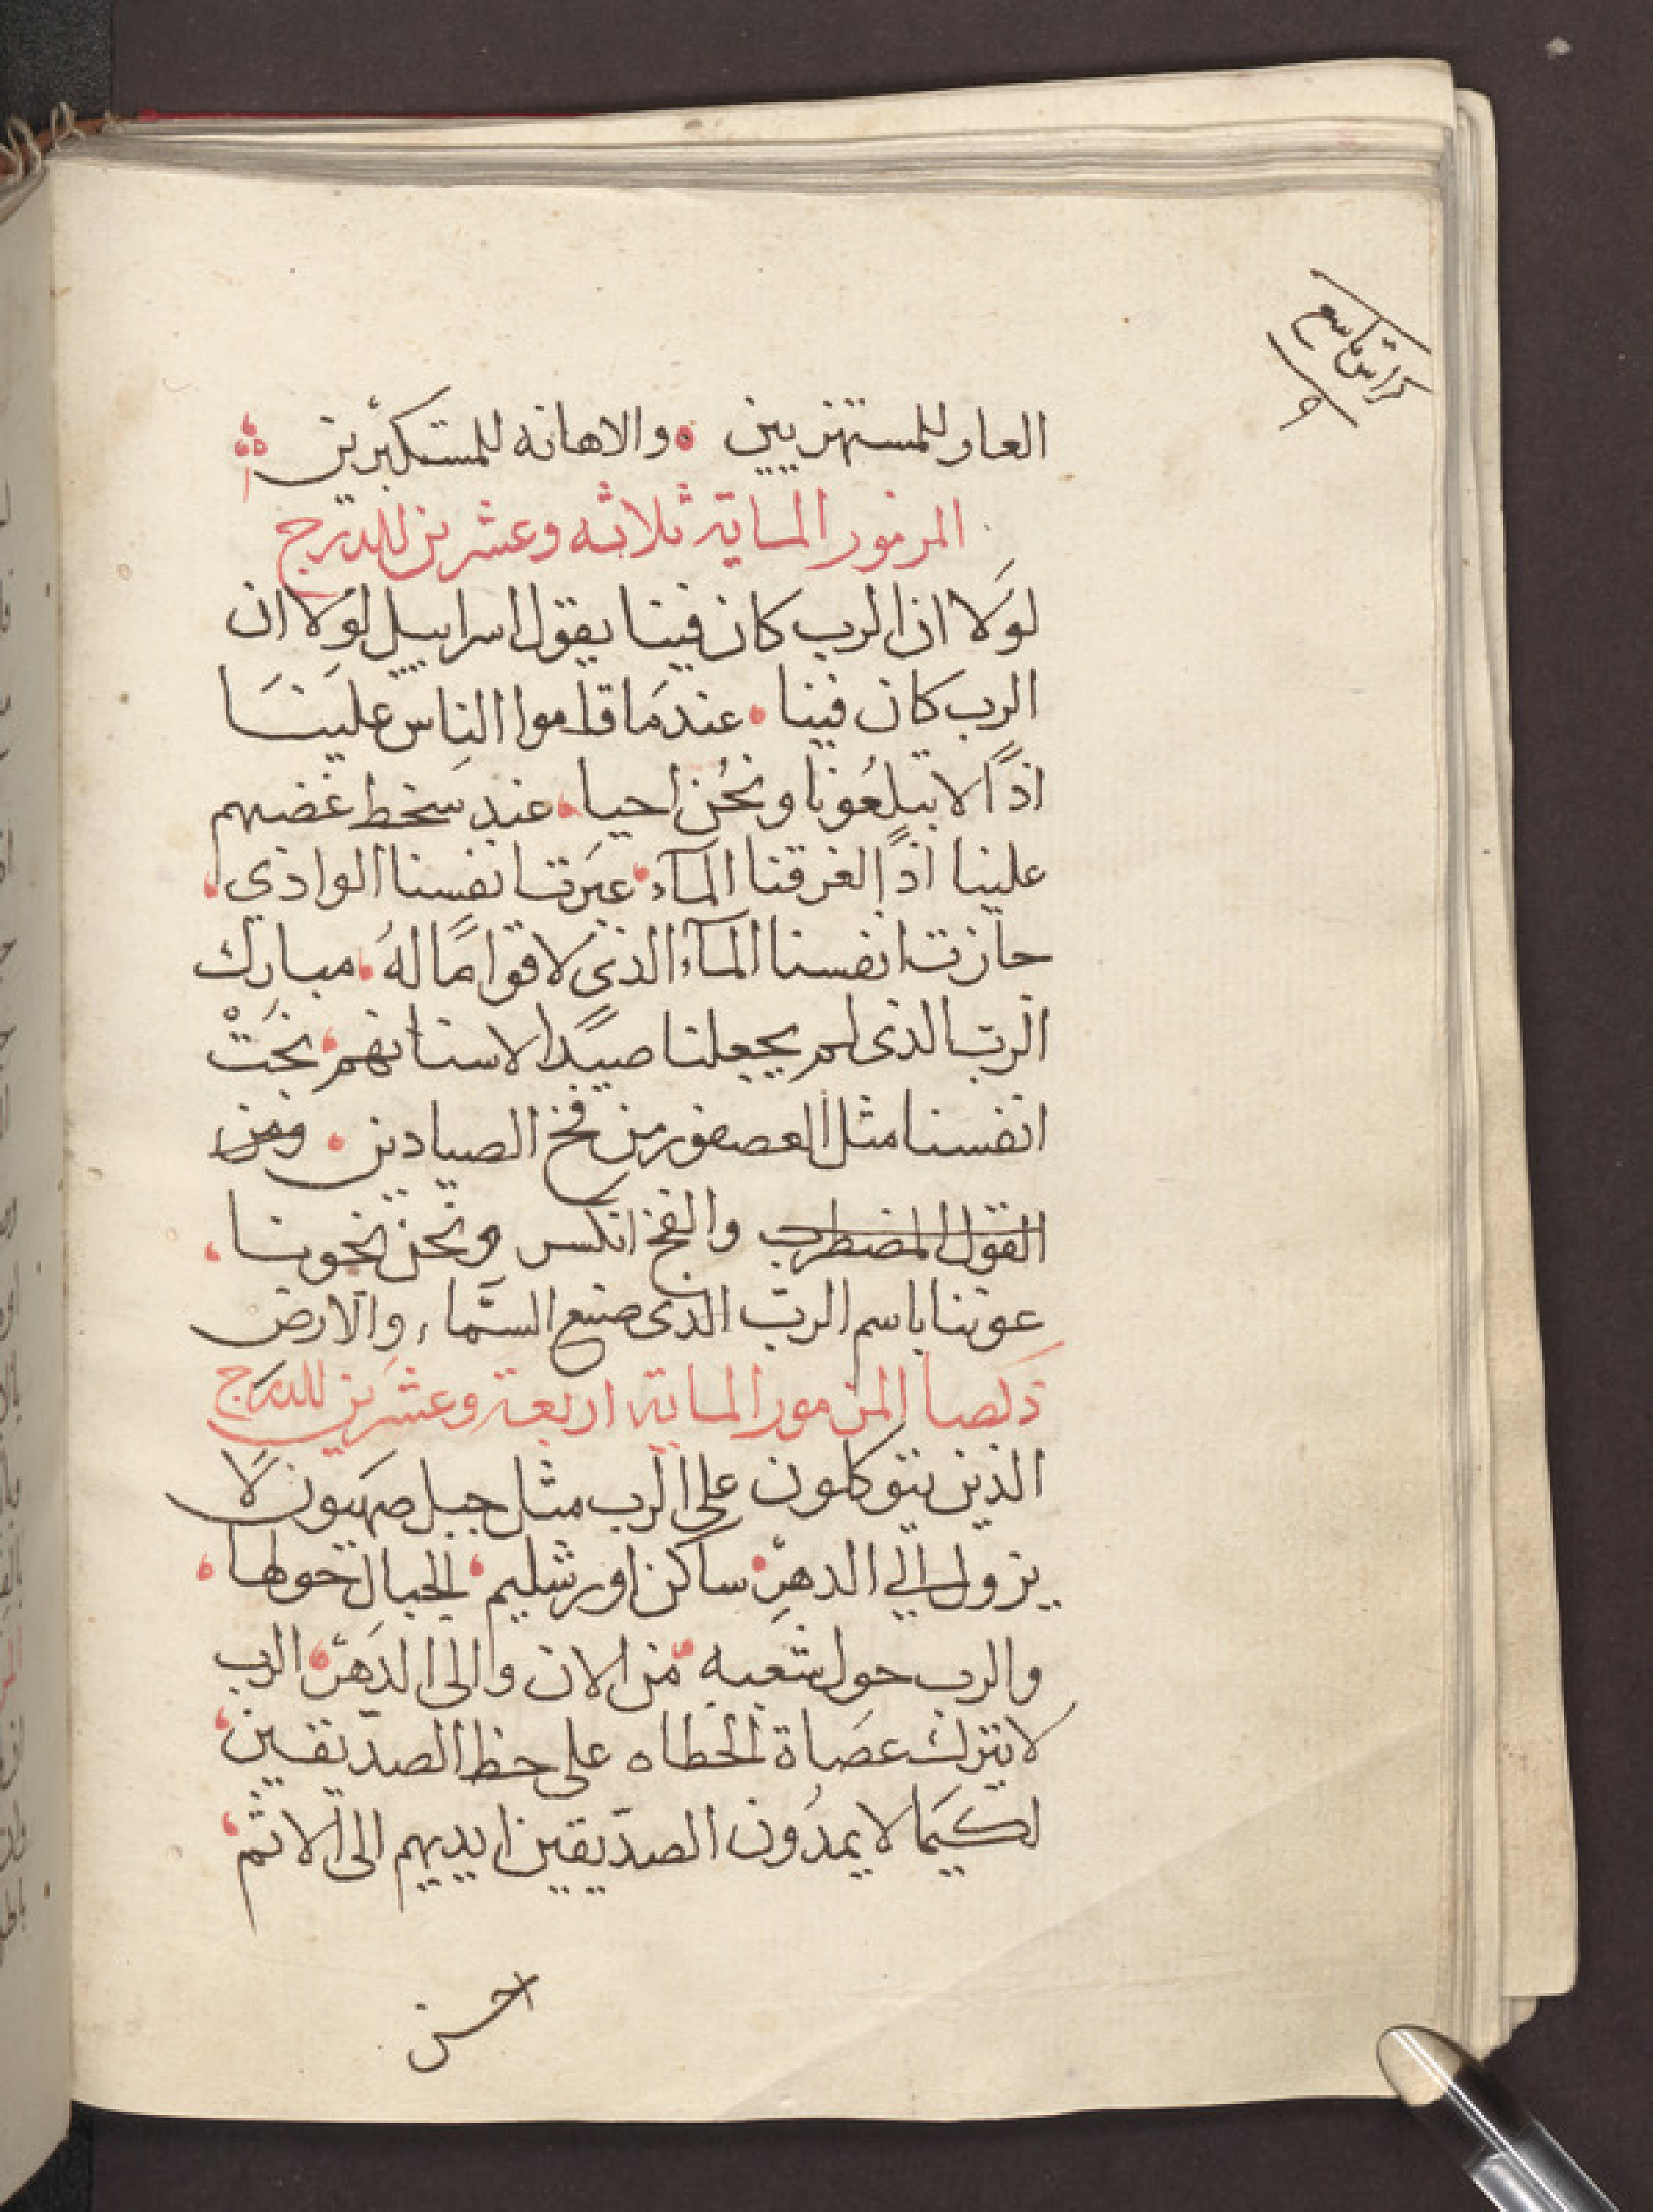 كراس تاسع
٩
العار للمستهزيين والاهانه للمستكبرين
المزمور المايه ثلاثه وعشرين للدرج
لَولَا ان الرب كان فينا يقول اسراييل لَولَا ان
الرب كان فينا عندمَا قاموا الناس علينَا
اذًا لابتلعُونا ونحُن احيا عند سَخط غضبهم
علينا اذًا لغرقنا المآء عبَرت انفسنا الوادى
جازت انفسنا المآء الذى لا قوامًا لهُ مبارك
الرب الذى لم يجعلنا صيدًا لاسنانهم نجَتْ
انفسنا مثل العصفور من فخ الصيادين ومن
القول المضطرب والفخ انكسر ونحن نجونا
عوننا باسم الربّ الذى صنع السَّماء والارض
ذكصا المزمور الماية اربعة وعشرين للدرج
الذين يتوكلون على الرب مثل جبل صهيون لَا
يزول الي الدهر ساكن اورشليم الجبال حولها
والرب حول شعبه من الان والى الدَهر الرب
لا يترك عصَاة الخطاه على حظ الصدّيقين
لكيمَا لا يمدُون الصدّيقين ايديهم الى الاثم
احسن